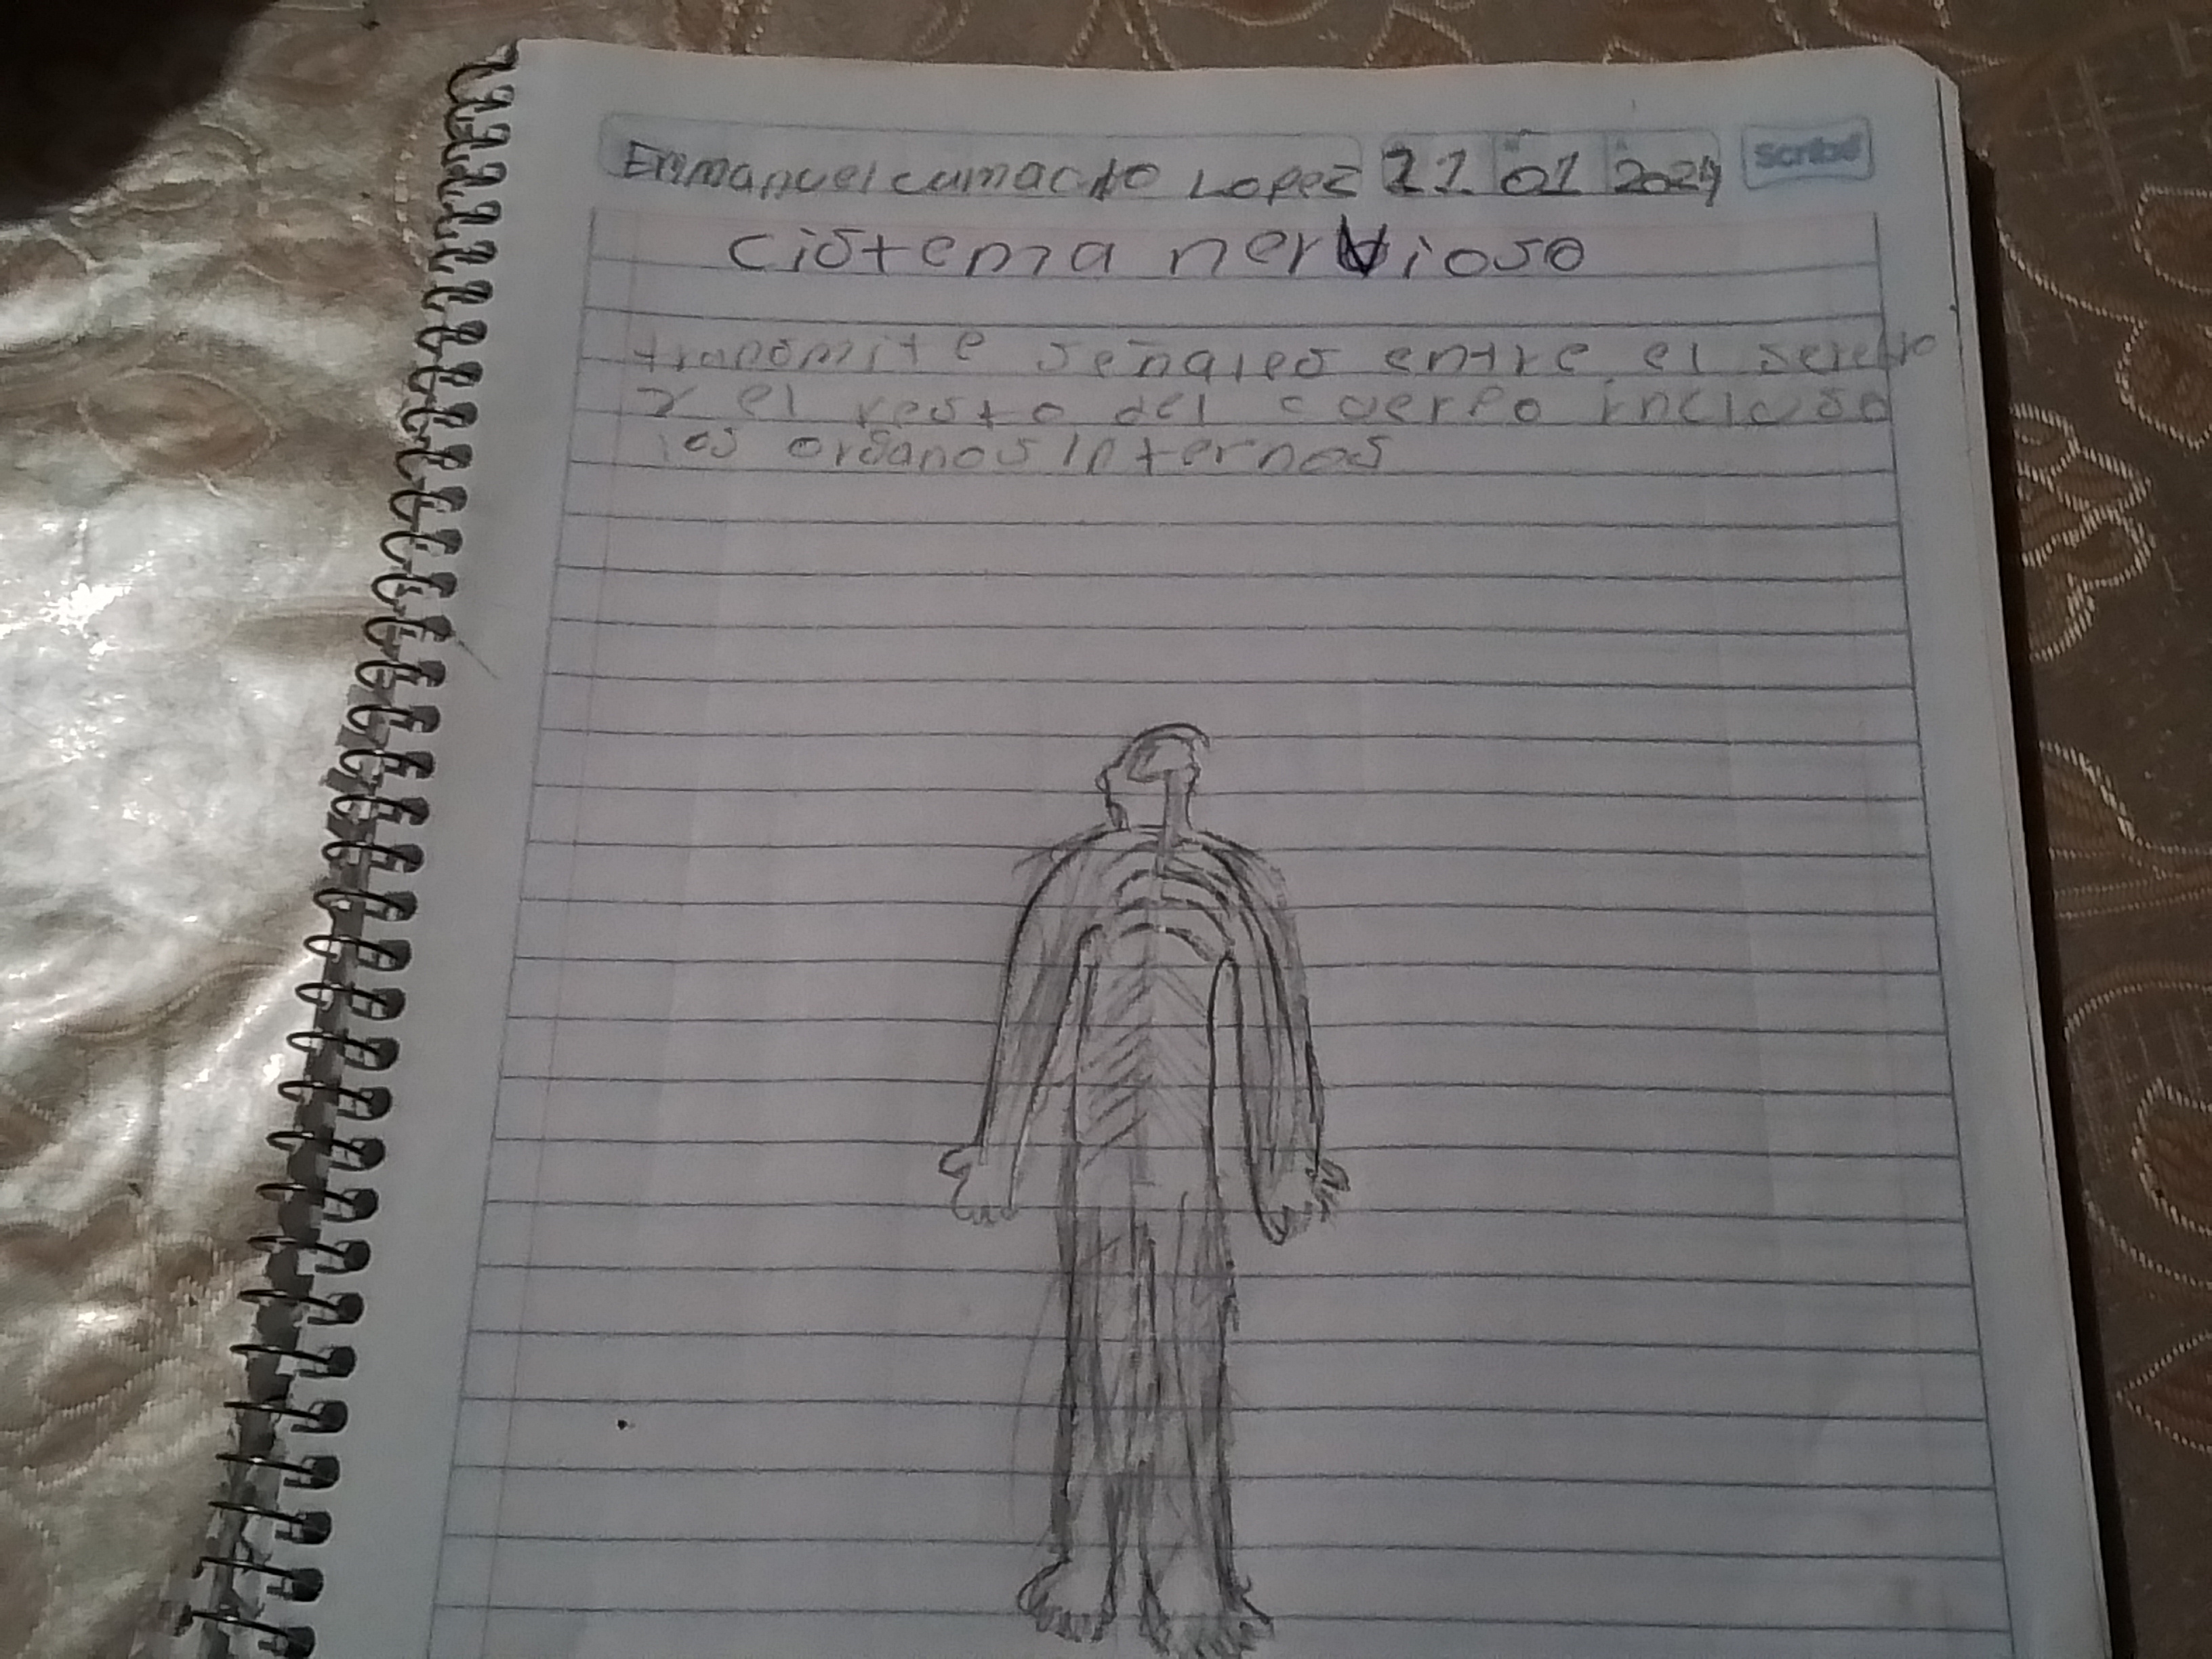 Emmanuel camacho Lopez 21 01 2024 Scribe
cistema nervioso
transmite señales entre el serebro
y el resto del cuerpo incluso
los organos internos